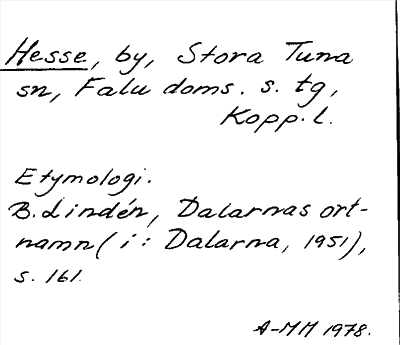 Hesse, by, Stora Tuna
sn, Falu doms. s. tg,
Kopp. l.
Etymologi.
B. Lindén, Dalarnas ort-
namn (i: Dalarna, 1951),
s. 161.
A-MM 1978.